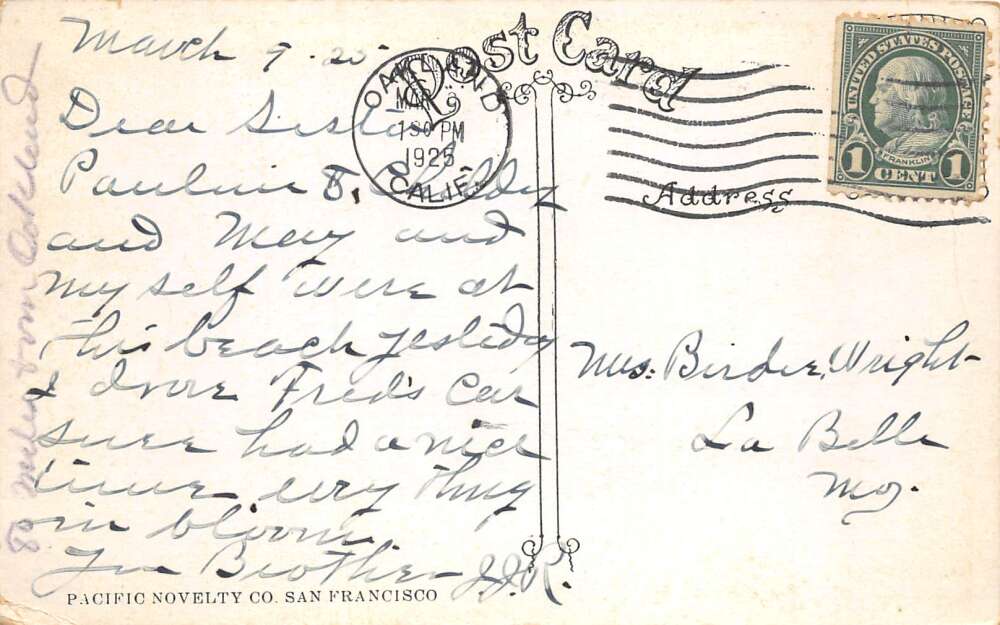 March 9-25
Post Card
OAKLAND
MAR 9
1 30 PM
1925
CALIF.
UNITED STATES POSTAGE
FRANKLIN
1 CENT 1
Address
Dear Sister
Pauline &
and May and
my self were at
this beach yesterday
I drove Fred's Car
sure had a nice
time evry thing
in bloom
Your Brother J.J.R.
80 miles from Oakland
Mrs. Birdie Wright
La Belle
Mo.
PACIFIC NOVELTY CO. SAN FRANCISCO